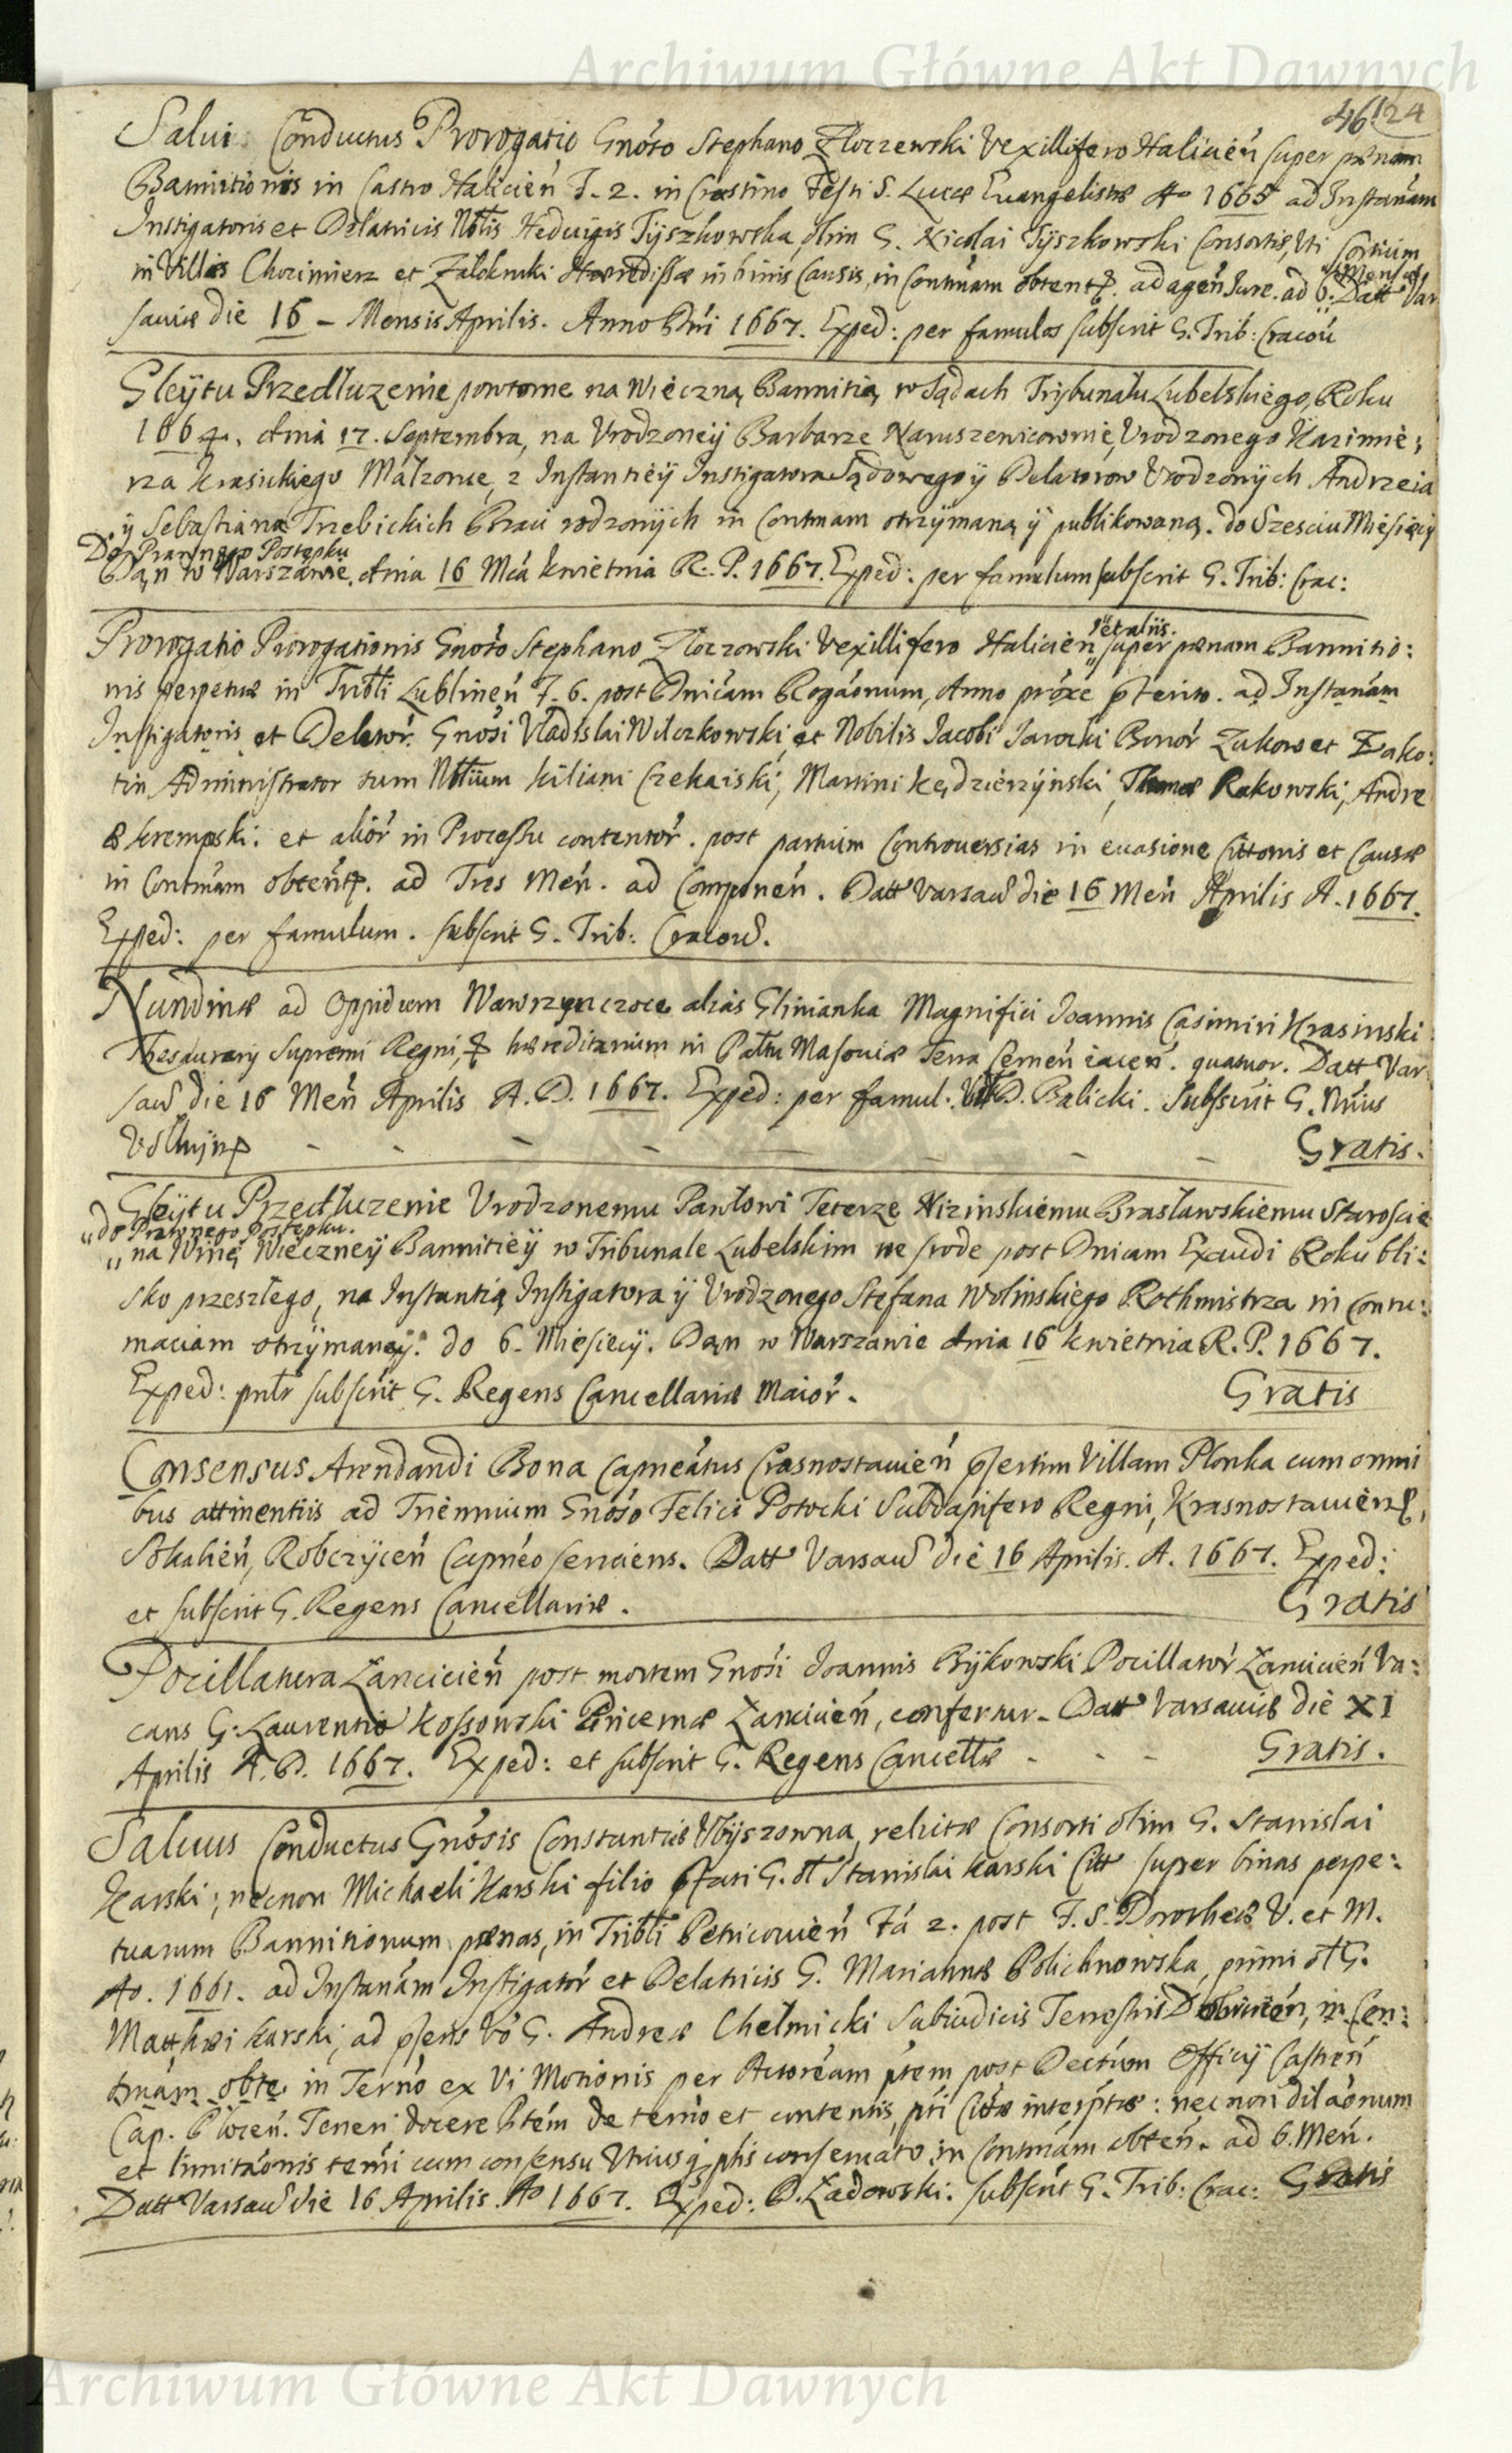 Archiwum Główne Akt Dawnych
46. 124
Salui Conductus Prorogatio Gnoso Stephano Zloczewski Vexillifero Halicien super pænam
Bannitionis in Castro Halicien F. 2. in Crastino Festi S. Lucæ Euangelistæ Ao 1665 ad Instanam
Instigatoris et Delatricis Nblis Heduigis Tyszkowska olim G. Nicolai Tyszkowski Consortis, Vti
in Villis Chocimierz et Hæredissæ in binis Causis, in Contmam obtent. ad agen Jure. ad 6. Mensas. Datt Var
sauiæ die 16 - Mensis Aprilis. Anno Dni 1667. Exped: per famulos subscrit G. Trib: Cracou
Gleytu Przedluzenie powtorne na Wieczną Bannitią w Sądach Trybunału Lubelskiego, Roku
1664. dnia 17. Septembra, na Vrodzoney Barbarze Naruszewicownie, Vrodzonego Kazimie:
rza Krasickiego Małzonce, z Instantiey Instigatora Sądowego y Delatorow Vrodzonych Andrzeia
y Sebastiana Trzebickich Braci rodzonych in Contmam otrzymaną y publikowaną. do Szesciu Miesięcy
Do Prawnego Postępku
Dan w Warszawie, dnia 16 Mca kwietnia R. P. 1667. Exped: per famulum subscrit G. Trib: Crac:
Prorogatio Prorogationis Gnoso Stephano Zloczowski Vexillifero Halicien "et aliis. super pænam Bannitio:
nis perpetuæ in Tribli Lublinen F. 6. post Dnicam Rogaonum, Anno proxe pterito. ad Instanam
Instigatoris et Delator. Gnosi Vladislai Wilczkowski, et Nobilis Jacobi Jarocki Bonor Zukow et Zako:
tin Administrator tum Nblium Kiliani Czekaiski, Martini Kędzierzynski, Thomæ Rakowski, Andre
æ Krempski: et alior in Processu contentor. post partium Controuersias in euasione Cittonis et Causæ
in Contmam obtent. ad Tres Men. ad Componen. Datt Varsau die 16 Men Aprilis A. 1667.
Exped: per famulum. subscrit G. Trib: Cracou.
Nundinæ ad Oppidum Wawrzynczoce alias Glinianka Magnifici Joannis Casimiri Krasinski
Thesaurarij Supremi Regni, hæreditarium in Pattu Masouiæ Terra Cernen iacen. quatuor. Datt Var
sau die 16 Men Aprilis A. D. 1667. Exped: per famul. D. Balicki. Subscrit G. Nrius
Volhyn - - - - - - - - Gratis.
Gleytu Przedłuzenie Vrodzonemu Pawłowi Teterze Nizinskiemu Brasławskiemu Staroscie
"do Prawnego Postępku.
"na Winę Wieczney Bannitiey w Tribunale Lubelskim we srode post Dnicam Exaudi Roku bli:
sko przeszłego, na Instantią Instigatora y Vrodzonego Stefana Wolinskiego Rothmistrza in Contu:
maciam otrzymaney. do 6. Miesiecy. Dan w Warszawie dnia 16 kwietnia R. P. 1667.
Exped: pntr subscrit G. Regens Cancellariæ Maior. Gratis
Consensus Arendandi Bona Capneatus Crasnostauien psertim Villam Plonka cum omni
bus attinentiis ad Triennium Gnoso Felici Potocki Subdapifero Regni, Krasnostauien,
Sokalien, Robczycen Capneo seruiens. Datt Varsau die 16 Aprilis. A. 1667. Exped:
et subscrit G. Regens Cancellariæ. Gratis
Pocillatura Lancicien post mortem Gnosi Joannis Bykowski Pocillator Lancicien Va:
cans G. Laurentio Kossowski Pincernæ Lancicien, confertur. Datt Varsauiæ die XI
Aprilis A. D. 1667. Exped: et subscrit G. Regens Cancellæ - - - Gratis.
Saluus Conductus Gnosis Constantiæ Vbyszowna, relictæ Consorti olim G. Stanislai
Karski; necnon Michaeli Karski filio pfati G. ol Stanislai Karski Citt super binas perpe:
tuarum Bannitionum pænas, in Tribli Petricouien Fa 2. post F. S. Dorotheæ V. et M.
Ao. 1661. ad Instanam Instigator et Delatricis G. Mariannæ Polichnowska, primi ol G.
Matthæi Karski, ad psens vo G. Andreæ Chelmicki Subiudicis Terrestris Dobrinen, in Con:
tmam obte in Terno ex Vi Motionis per Actoream ptem post Dectum Officij Castren
Cap. Teneri docere de terno et contentis, : necnon dilaonum
et limitaonis terni cum consensu Vtriusq ptis conseruato in Contmam obten. ad 6. Men.
Datt Varsau die 16 Aprilis. Ao 1667. Exped: D. Zadowski. subscrit G. Trib: Crac: Gratis
Archiwum Główne Akt Dawnych